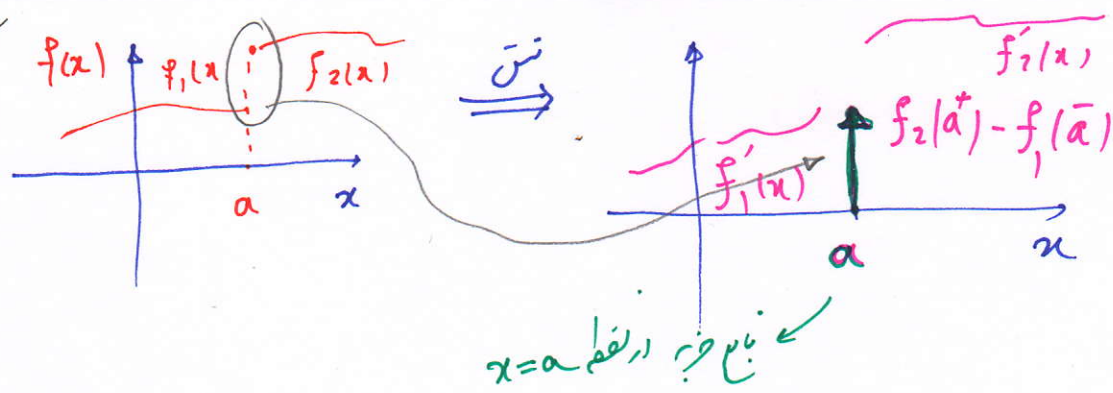 f(x)
f₁(x
f₂(x)
a
x
مشتق
f₁′(x)
f₂′(x)
f₂(a⁺) - f₁(a⁻)
a
x
تابع ضربه در نقطه x=a